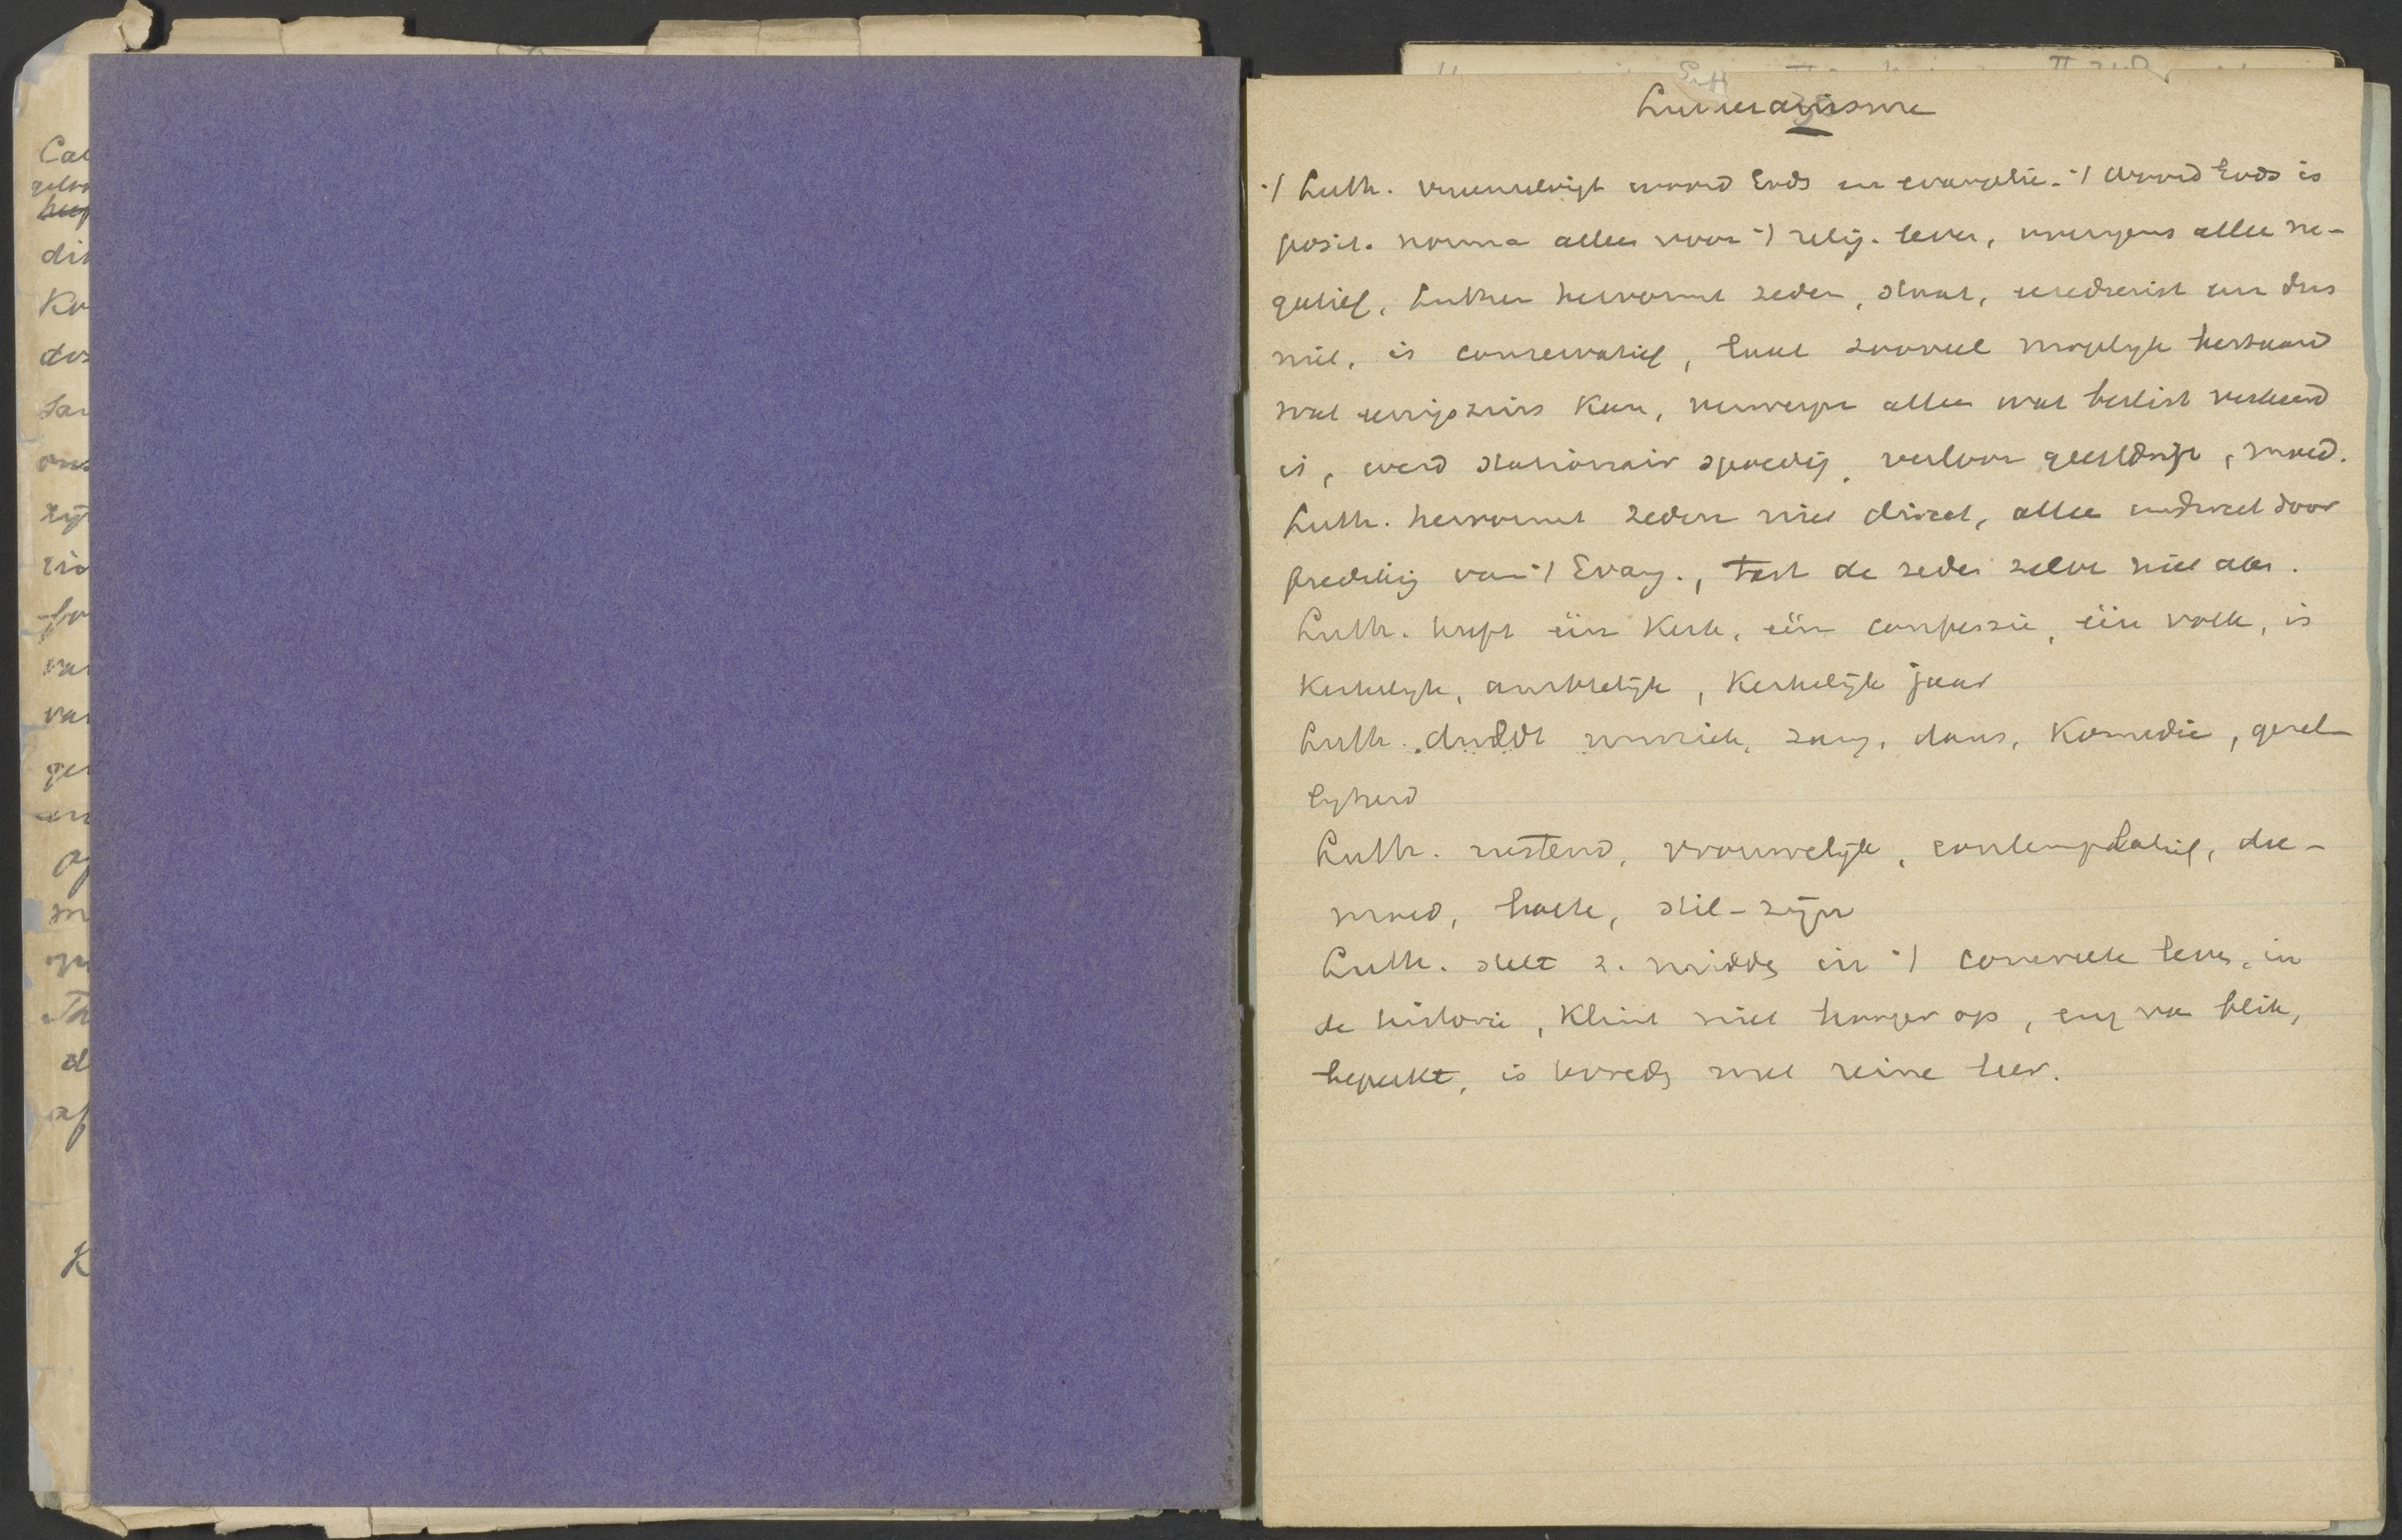 Cal
gelo
hee
din
Ko
dos
San
ons
zijn
van
van
ge
en
op
m
Th
d
af
K
Lutheranisme
't Luth. vereenzelvigt woord Gods en evangelie. 't Woord Gods is
posit. norma alleen voor 't relig. leven, overigens alleen ne-
gatief. Luther hervormt zeden, staat, eeredienst enz dus
niet, is conservatief, laat zooveel mogelijk bestaand
wat eenigszins kan, verwerpt alleen wat beslist verkeerd
is, werd stationair spoedig, verloor geestdrift, moed.
Luth. hervormt zeden niet direct, alleen indirect door
prediking van 't Evang., tast de zeden zelve niet aan.
Luth. heeft één Kerk, één confessie, één volk, is
Kerkelijk, ambtelijk, Kerkelijk jaar
Luth. duldt muziek, zang, dans, Komedie, gezel-
lijkheid
Luth. rustend, vrouwelijk, contemplatief, dee-
moed, hoede, stil-zijn
Luth. stelt z. midden in 't concrete leven, in
de historie, Klimt niet hooger op, eng van blik,
beperkt, is tevreden met reine leer.